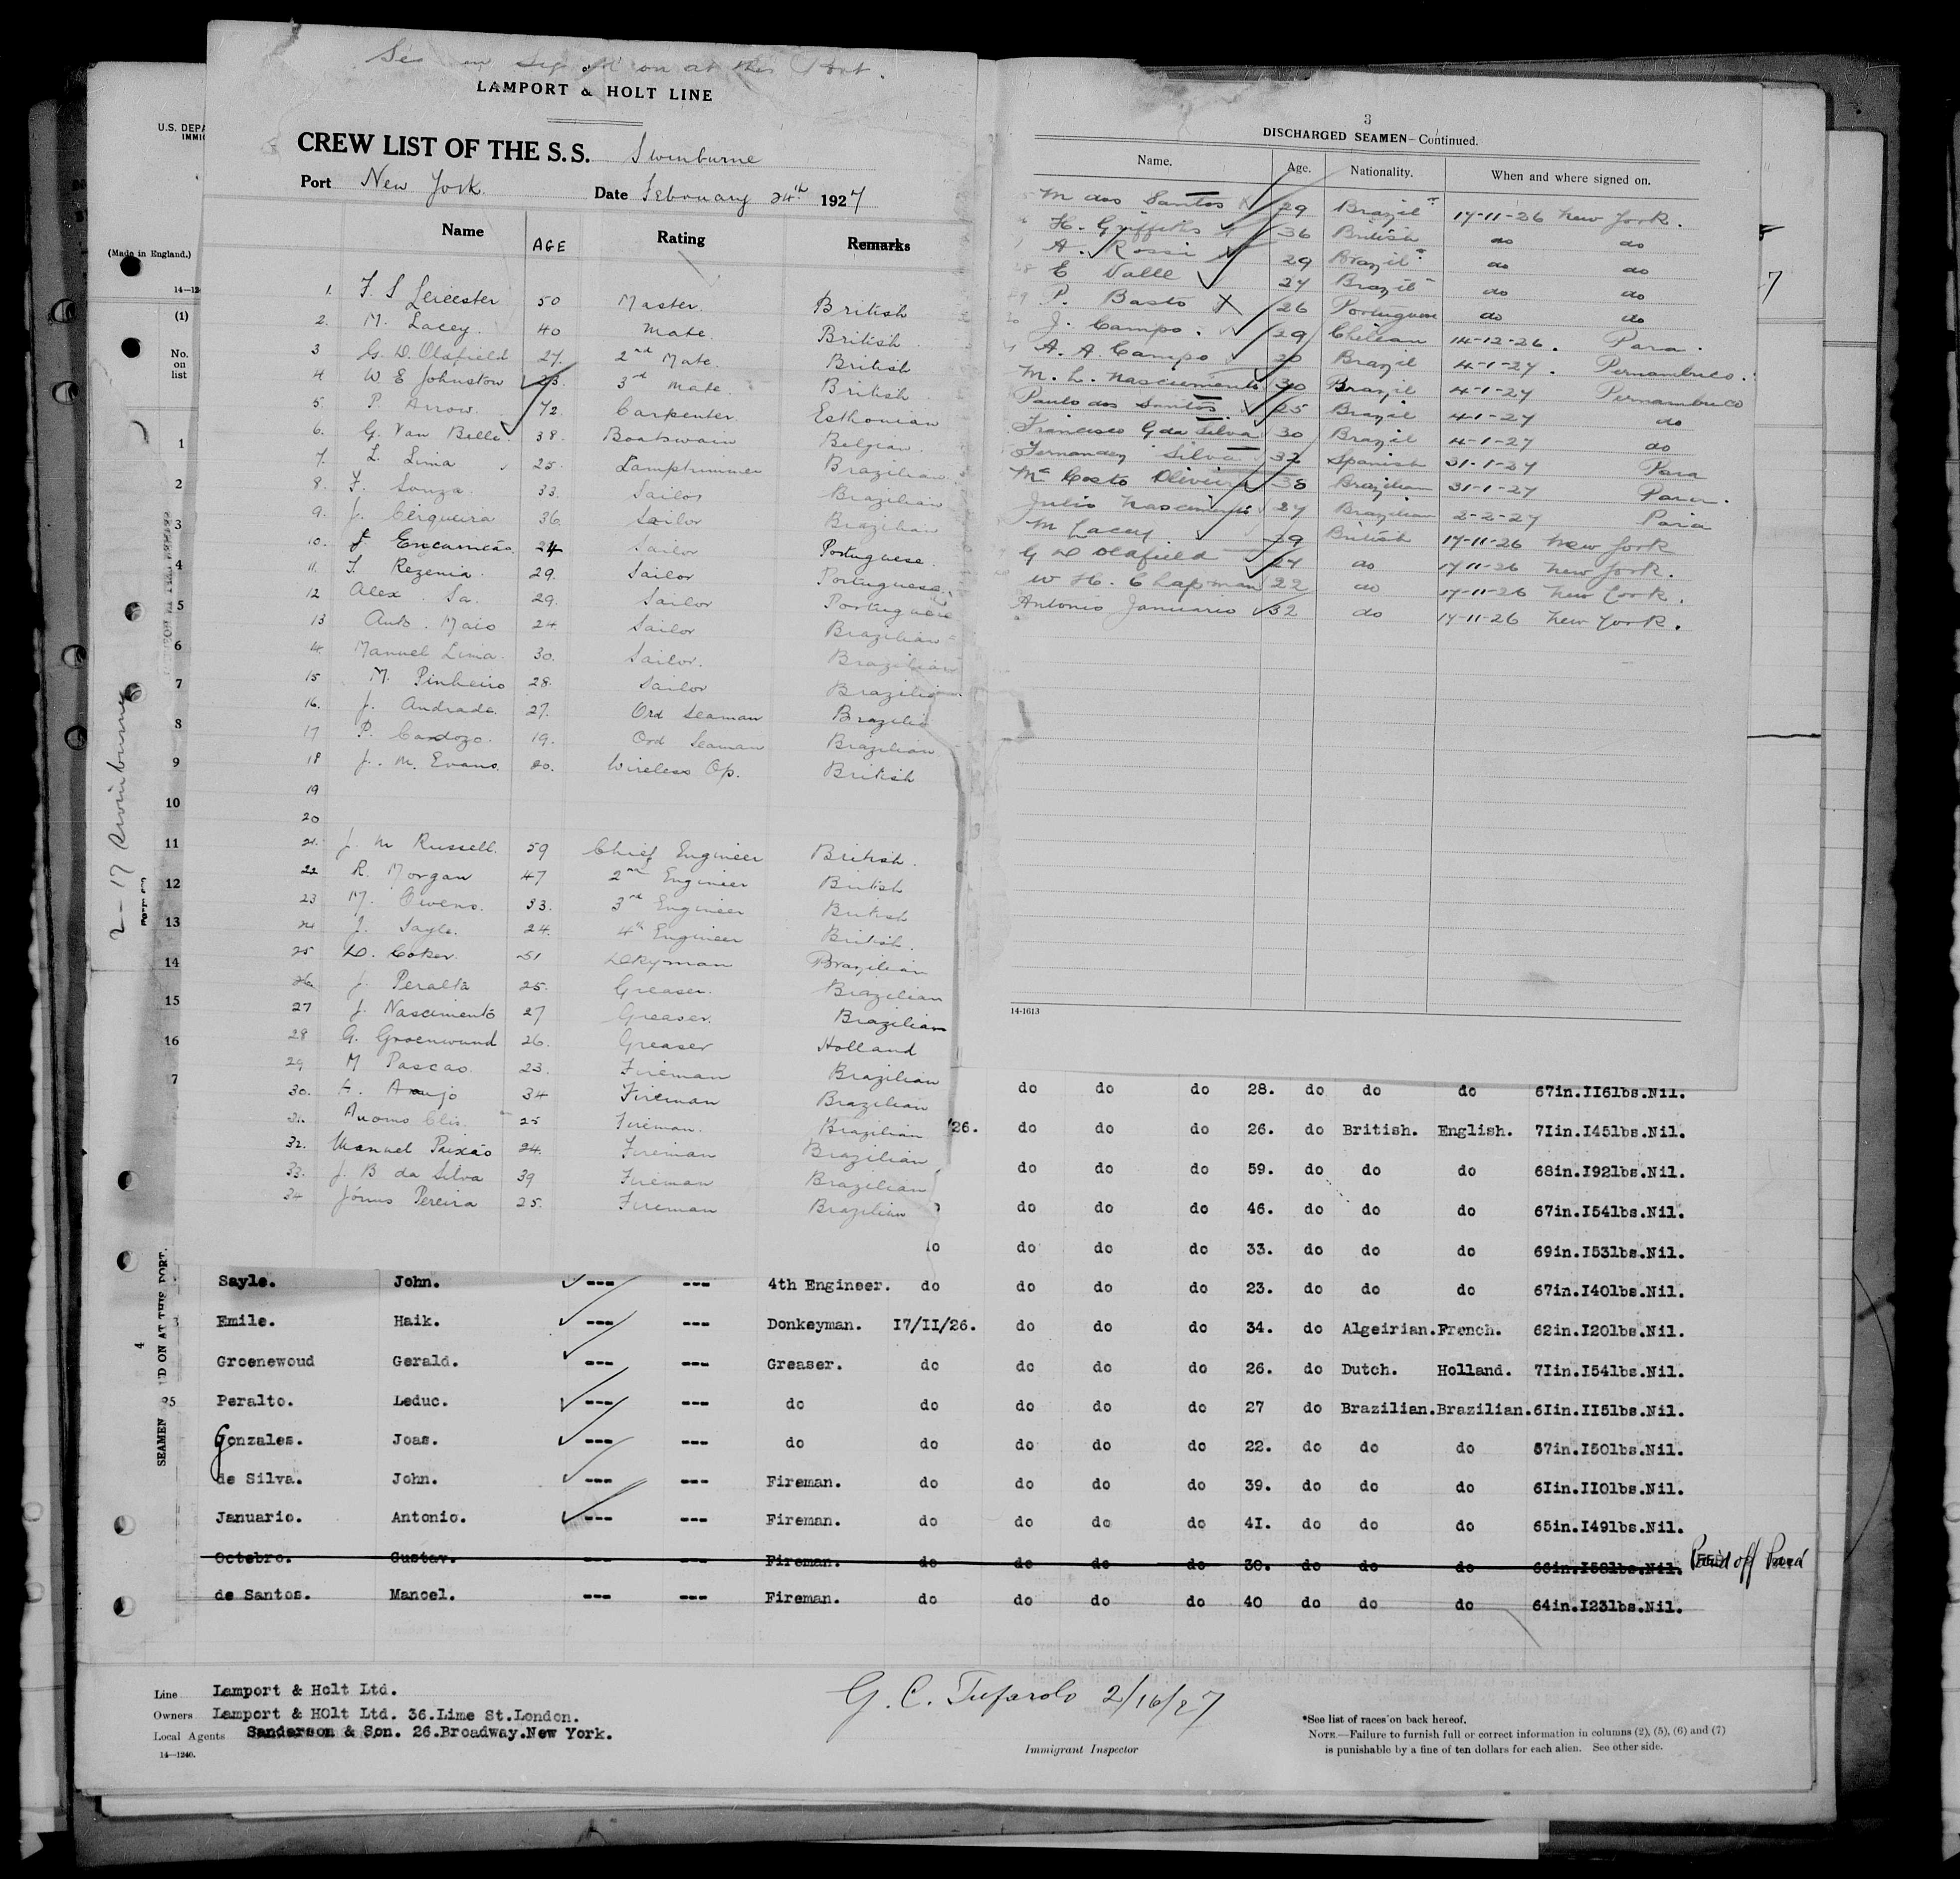 on at this Port.
LAMPORT & HOLT LINE
CREW LIST OF THE S.S. Swinburne
Port New York. Date February 24th 1927
Name AGE Rating Remarks
1. F. S Leicester 50 Master. British
2. M. Lacey. 40 Mate. British
3 G. D. Oldfield 27. 2nd Mate. British
4 W E Johnston 23. 3rd Mate. British
5. P. Arrow. 42. Carpenter. Esthonian
6. G. Van Belle. 38. Boatswain Belgian.
7. L. Lima 25. Lamptrimmer Brazilian.
8. F. Souza. 33. Sailor Brazilian
9. J. Cerqueira 36. Sailor Brazilian
10. J. Encarnicão 24 Sailor Portuguese.
11. J. Rezenia. 29. Sailor Portuguese.
12 Alex. Sa. 29. Sailor Portuguese
13 Anto. Maio 24 Sailor Brazilian
14 Manuel Lima. 30. Sailor. Brazilian
15 M. Pinheiro 28. Sailor Brazilian.
16. J. Andrade. 27. Ord Seaman Brazilia
17 P. Cardozo. 19. Ord Seaman Brazilian
18 J. M. Evans. 20. Wireless Op. British
19
20
21. J. M Russell. 59 Chief Engineer British.
22 R. Morgan 47 2nd Engineer British
23 M. Owens. 33. 3rd Engineer British
24 J. Sayle. 24. 4th Engineer British.
25 D. Coker. 51 Dkyman Brazilian
26 J. Peralta 25. Greaser. Brazilian
27 J. Nascimento 27 Greaser. Brazilian
28 G. Groenwund 26. Greaser Holland
29 M Pascao. 23. Fireman Brazilian
30. A. Araujo 34 Fireman Brazilian
31. 25 Fireman. Brazilian
32. Manuel Paixão 24. Fireman Brazilian
33. J. B da Silva 39 Fireman Brazilian
34 Pereira 25. Fireman Brazilian
3
DISCHARGED SEAMEN—Continued.
Name. Age. Nationality. When and where signed on.
M dos Santos 29 Brazil 17-11-26 New York.
H. Griffiths 36 British do do
A. Rossi 29 Brazil do do
E Valle 24 Brazil do do
P. Basto 26 Portuguese do do
J. Campo. 29 Chilean 14-12-26. Para.
A. A. Campo 20 Brazil 4-1-27. Pernambuco.
M. L. Nascimento 30 Brazil 4-1-27 Pernambuco
Paulo dos Santos 25 Brazil 4-1-27 do
Francisco G da Silva 30 Brazil 4-1-27 do
Fernandez Silva 32 Spanish 31-1-27 Para
Costo Oliviera 38 Brazilian 31-1-27 Para.
Julio Nascimento 27 Brazilian 2-2-27 Para
M Lacey 39 British 17-11-26 New York
G D Oldfield 27 do 17-11-26 New York.
W H. Chapman 22 do 17-11-26 New York.
Antonio Januario 32 do 17-11-26 New York.
14-1613
U.S. DEPA
IMMIG
(Made in England.)
14—12
(1)
No. on list
1
2
3
4
5
6
7
8
9
10
11
12
13
14
15
16
7
2—17 Swinburne
do do do 28. do do do 67in.II6lbs.Nil.
/26. do do do 26. do British. English. 7Iin.I45lbs.Nil.
do do do 59. do do do 68in.I92lbs.Nil.
do do do 46. do do do 67in.I54lbs.Nil.
do do do do 33. do do do 69in.I53lbs.Nil.
Sayle. John. --- --- 4th Engineer. do do do do 23. do do do 67in.I40lbs.Nil.
Emile. Haik. --- --- Donkeyman. I7/II/26. do do do 34. do Algeirian. French. 62in.I20lbs.Nil.
Groenewoud Gerald. --- --- Greaser. do do do do 26. do Dutch. Holland. 7Iin.I54lbs.Nil.
Peralto. Leduc. --- --- do do do do do 27 do Brazilian. Brazilian. 6Iin.II5lbs.Nil.
Gonzales. Joas. --- --- do do do do do 22. do do do 67in.I50lbs.Nil.
de Silva. John. --- --- Fireman. do do do do 39. do do do 6Iin.II0lbs.Nil.
Januario. Antonio. --- --- Fireman. do do do do 4I. do do do 65in.I49lbs.Nil.
Octobro. Gustav. --- --- Fireman. do do do do 30. do do do 66in.I58lbs.Nil. Paid off Para
de Santos. Manoel. --- --- Fireman. do do do do 40 do do do 64in.I23lbs.Nil.
4 SEAMEN
'D ON AT THIS PORT.
Line Lamport & Holt Ltd.
Owners Lamport & HOlt Ltd. 36.Lime St.London.
Local Agents Sanderson & Son. 26.Broadway.New York.
14—1240.
G. C. Tufarolo 2/16/27
Immigrant Inspector
*See list of races on back hereof.
NOTE.—Failure to furnish full or correct information in columns (2), (5), (6) and (7)
is punishable by a fine of ten dollars for each alien. See other side.